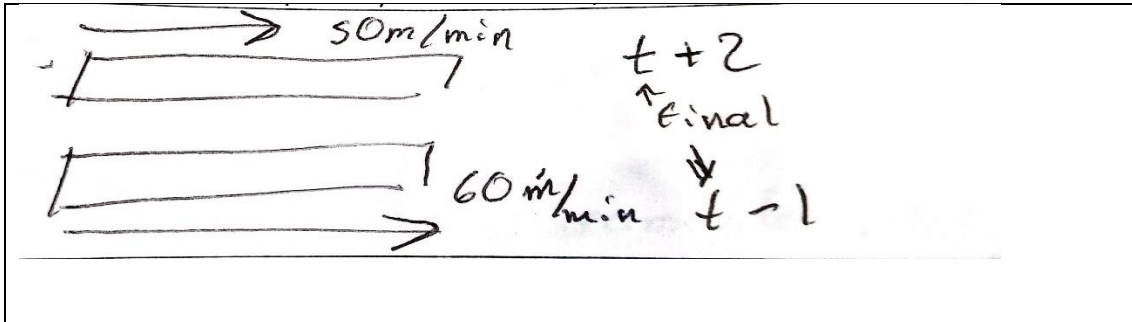 50m/min
t + 2
final
60 m/min t - 1